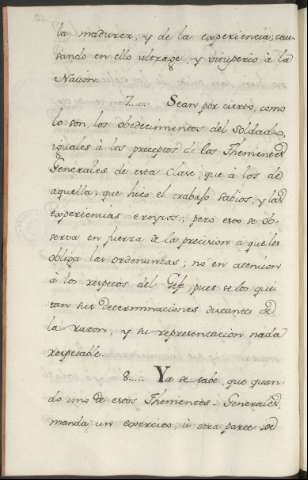 la madurez, y de la experiencia, cau-
sando en ello ultrage, y vituperio à la
Nacion.
7.... Sean por cierto, como
lo son, los obedecimientos del Soldado,
iguales à los preceptos de los Thenientes
Generales de esta Clase, que à los de
aquella, que hizo el trabajo sabios, y las
experiencias expertos; pero esto se ob-
serva en fuerza de la precision à que les
obliga las ordenanzas; no en atencion
à los respetos del Gefe, pues se los qui-
tan sus determinaciones distantes de
la razon, y su representacion nada
respetable.
8.... Ya se sabe que quan-
do uno de estos Thenientes Generales,
manda un exercito, ù otra parte de